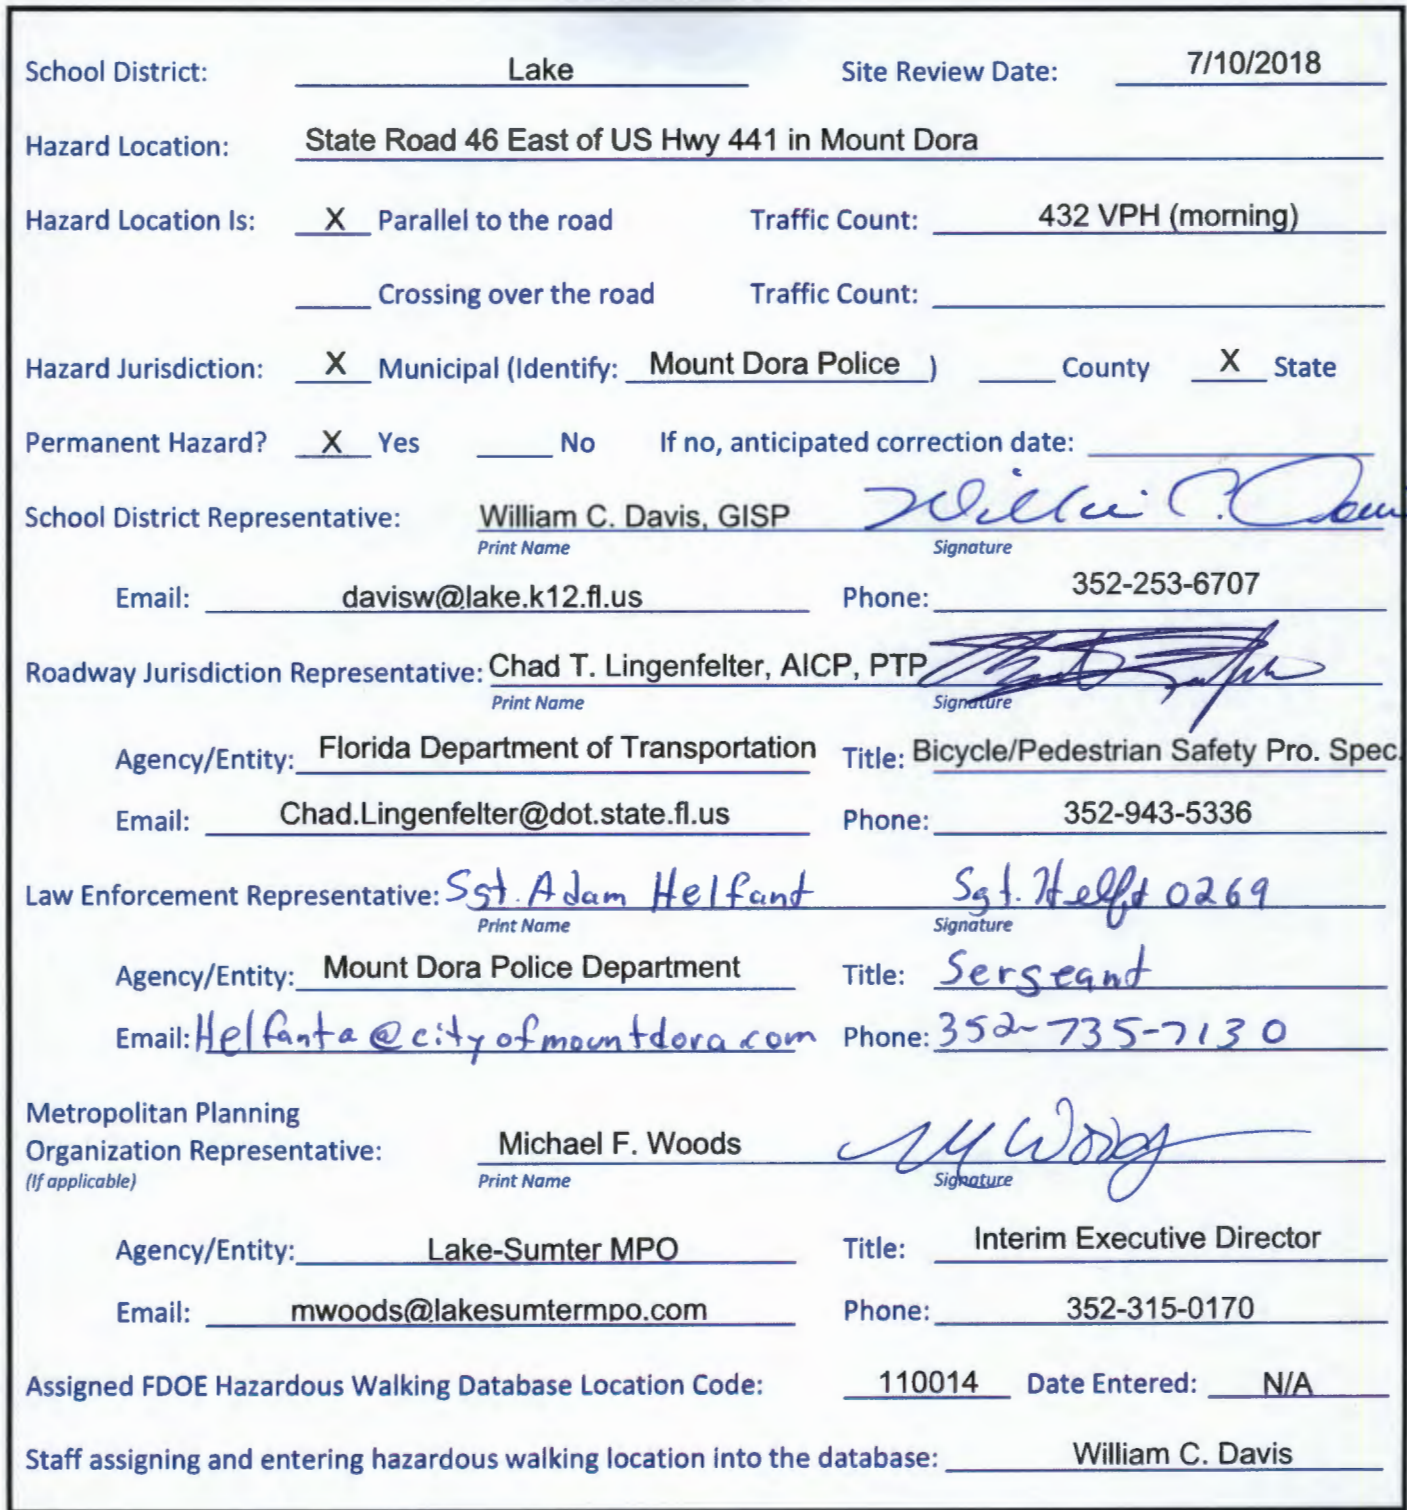 School District: Lake Site Review Date: 7/10/2018
Hazard Location: State Road 46 East of US Hwy 441 in Mount Dora
Hazard Location Is: X Parallel to the road Traffic Count: 432 VPH (morning)
Crossing over the road Traffic Count:
Hazard Jurisdiction: X Municipal (Identify: Mount Dora Police ) County X State
Permanent Hazard? X Yes No If no, anticipated correction date:
School District Representative: William C. Davis, GISP Willi C. Davis
Print Name Signature
Email: davisw@lake.k12.fl.us Phone: 352-253-6707
Roadway Jurisdiction Representative: Chad T. Lingenfelter, AICP, PTP
Print Name Signature
Agency/Entity: Florida Department of Transportation Title: Bicycle/Pedestrian Safety Pro. Spec.
Email: Chad.Lingenfelter@dot.state.fl.us Phone: 352-943-5336
Law Enforcement Representative: Sgt. Adam Helfant Sgt. Helft 0269
Print Name Signature
Agency/Entity: Mount Dora Police Department Title: Sergeant
Email: Helfanta@cityofmountdora.com Phone: 352-735-7130
Metropolitan Planning
Organization Representative: Michael F. Woods M Woods
(If applicable) Print Name Signature
Agency/Entity: Lake-Sumter MPO Title: Interim Executive Director
Email: mwoods@lakesumtermpo.com Phone: 352-315-0170
Assigned FDOE Hazardous Walking Database Location Code: 110014 Date Entered: N/A
Staff assigning and entering hazardous walking location into the database: William C. Davis